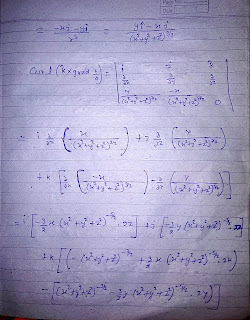 = -xj - yi / r³ = yi - xj / (x²+y²+z²)^3/2
Curl (k × grad 1/r) = | i j k |
| ∂/∂x ∂/∂y ∂/∂z |
| y/(x²+y²+z²)^3/2 -x/(x²+y²+z²)^3/2 0 |
= i ∂/∂z (x/(x²+y²+z²)^3/2) + j ∂/∂z (y/(x²+y²+z²)^3/2)
+ k [∂/∂x (-x/(x²+y²+z²)^3/2) - ∂/∂y (y/(x²+y²+z²)^3/2)]
= i [-3/2 x (x²+y²+z²)^-5/2 . 2z] + j [-3/2 y (x²+y²+z²)^-5/2 . 2z]
+ k [(-(x²+y²+z²)^-3/2 + 3/2 x (x²+y²+z²)^-5/2 . 2x)
- [(x²+y²+z²)^-3/2 - 3/2 y (x²+y²+z²)^-5/2 . 2y)]